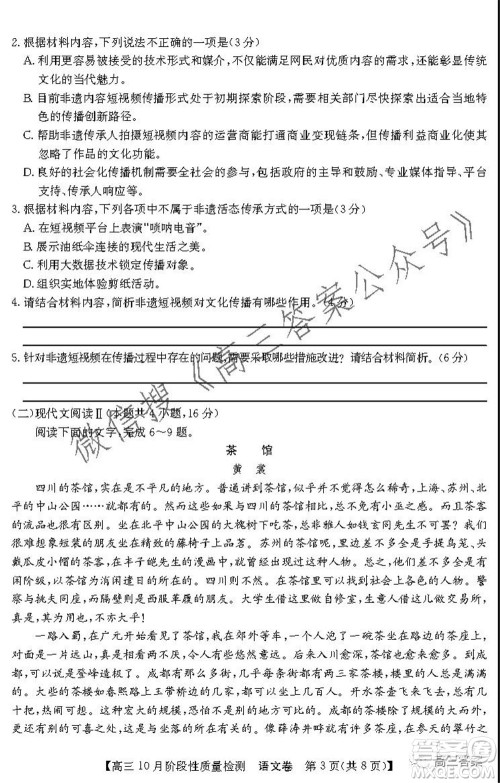 2. 根据材料内容,下列说法不正确的一项是(3分)
A. 利用更容易被接受的技术形式和媒介,不仅能满足网民对优质内容的需求,还能延续传统
文化的当代魅力。
B. 目前非遗短视频传播形式处于初期探索阶段,需要相关部门尽快探索出适合当地特
色的传播创新路径。
C. 帮助非遗传承人拍摄非遗短视频内容的运营商能打破非遗商业化的困局,但也会使其
忽视非遗的文化功能。
D. 良好的社会化传播机制需要全社会的参与,包括政府的主导和鼓励、专业媒体的支持、
传人响应等。
3. 根据材料内容,下列各项中不属于非遗活态传承方式的一项是(3分)
A. 在短视频平台上表演“唢呐电音”。
B. 展示油纸伞连接的现代生活之美。
C. 利用大数据技术锁定传播对象。
D. 组织实地体验剪纸活动。
4. 请结合材料内容,简析非遗短视频对文化传播有哪些作用。(4分)
5. 针对非遗短视频在传播过程中存在的问题,需要采取哪些措施改进?请结合材料简析。(6分)
(二)现代文阅读Ⅱ(本题共4小题,16分)
阅读下面的文字,完成6~9题。
茶 馆
黄 裳
四川的茶馆,实在是不平凡的地方。普通讲到茶馆,似乎并不觉得怎么稀奇,上海、苏州、北
平的中山公园……就都有的。然而这些如果与四川的茶馆相比,总不免有小巫之感。而且茶客
的流品也很有区别。坐在北平中山公园的大槐树下吃茶,总非雅人如钱玄同先生不可罢?我们
很难想象短装的朋友坐在精致的藤椅子上品茗。苏州的茶馆呢,里边差不多全是手提鸟笼、头
戴瓜皮小帽的茶客,在丰子恺先生的漫画中,就曾经出现过这种人物。总之,他们差不多全是有
闲阶级,以茶馆为消闲遣日的所在的。四川则不然。在茶馆里可以找到社会上各色的人物。警
察与挑夫同座,而隔壁则是西服革履的朋友。大学生借这里做自修室,生意人借这儿做交易所,
真是,其为用也,不亦大乎!
一路入蜀,在广元开始看见了茶馆,我在郊外等车,一个人泡了一碗茶坐在路边的茶座上。
对面是一片远山,真是相看两不厌,令人有些悠然意远。后来入川愈深,茶馆也愈来愈多。到成
都,可以说是登峰造极了。成都有那么多街,几乎每条街都有两三家茶楼,楼里的人总是满满
的。大些的茶楼如春熙路上玉带桥边的几家,都可以坐上几百人。开水茶壶飞来飞去,总有几
十把,热闹可想。这种宏大的规模,恐怕不是别的地方可比的。成都的茶楼除了规模的大而外,
更还有别的可喜之处,这是与坐落的所在有关的。像薛涛井畔就有许多茶座,在参天的翠竹之
高三10月阶段性质量检测 语文卷 第3页(共8页)
高三答案
微信搜《高三答案公众号》